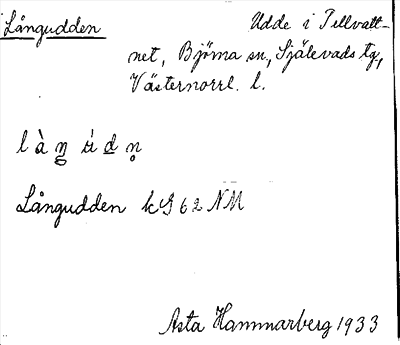 Långudden Udde i Tellvatt-
net, Björna sn, Själevads tg,
Västernorrl. l.
Långudden kG 62 NM
Asta Hammarberg 1933